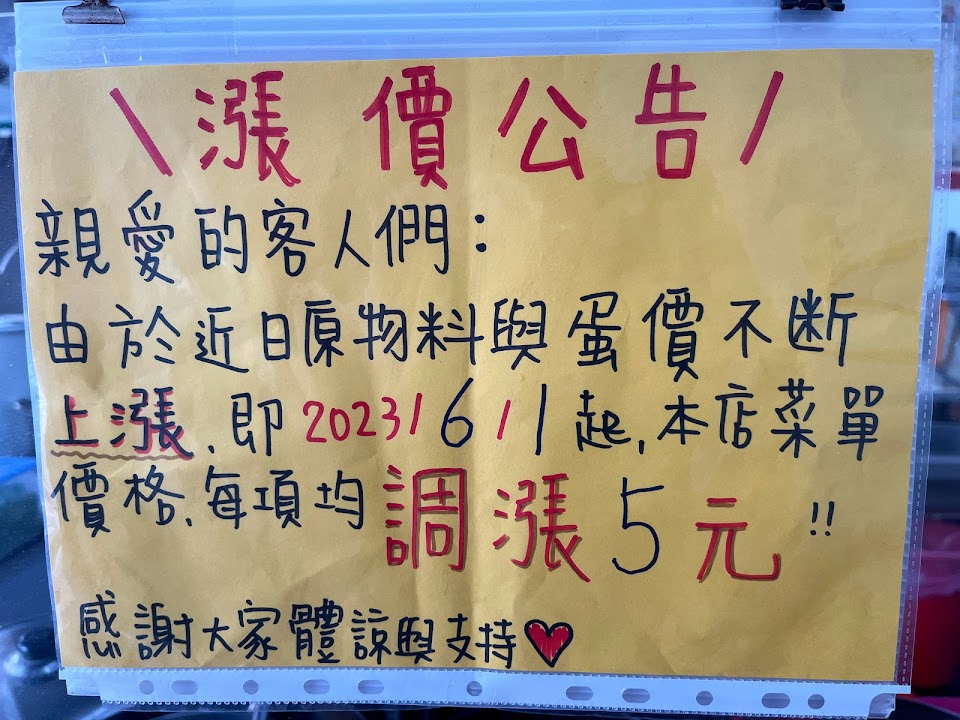 \漲價公告/
親愛的客人們：
由於近日原物料與蛋價不断
上漲,即2023/6/1起,本店菜單
價格,每項均調漲5元!!
感謝大家體諒與支持♥